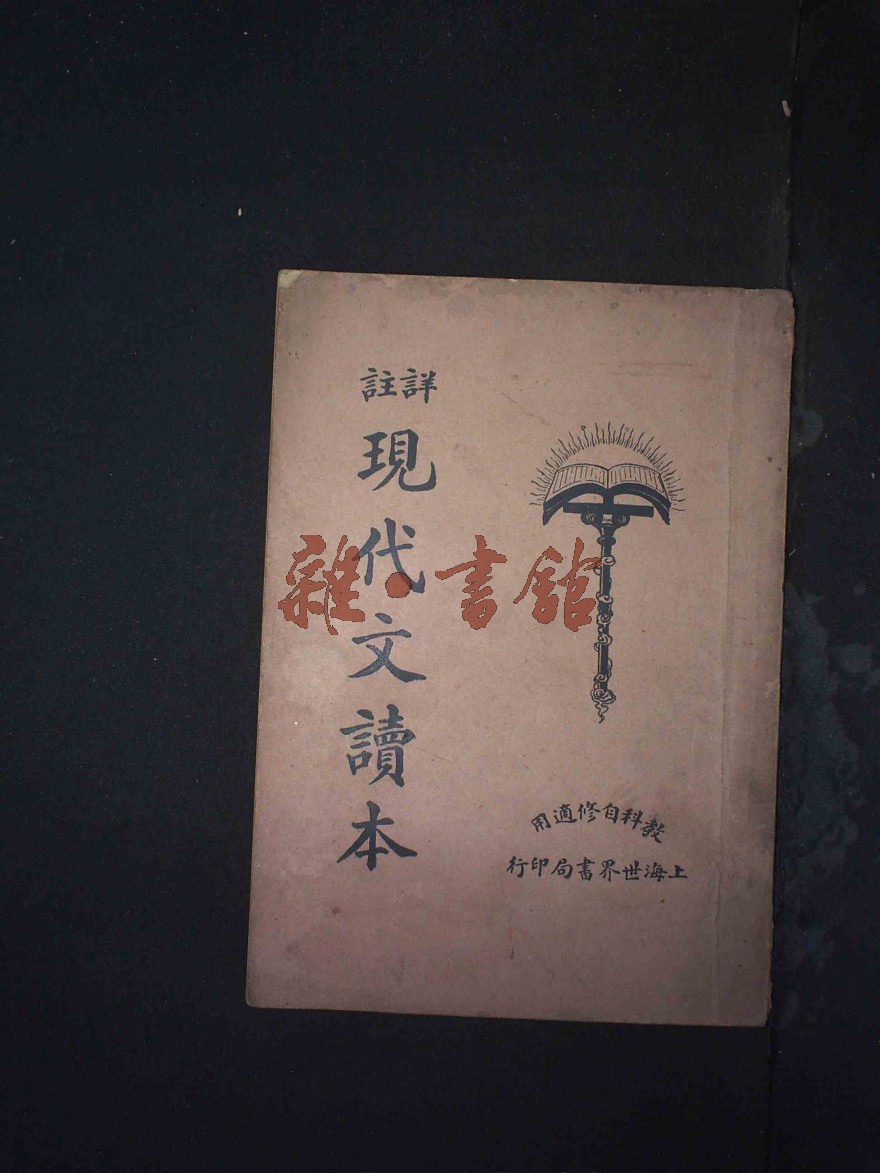 詳註
現代文讀本
教科自修適用
上海世界書局印行
雜·書館